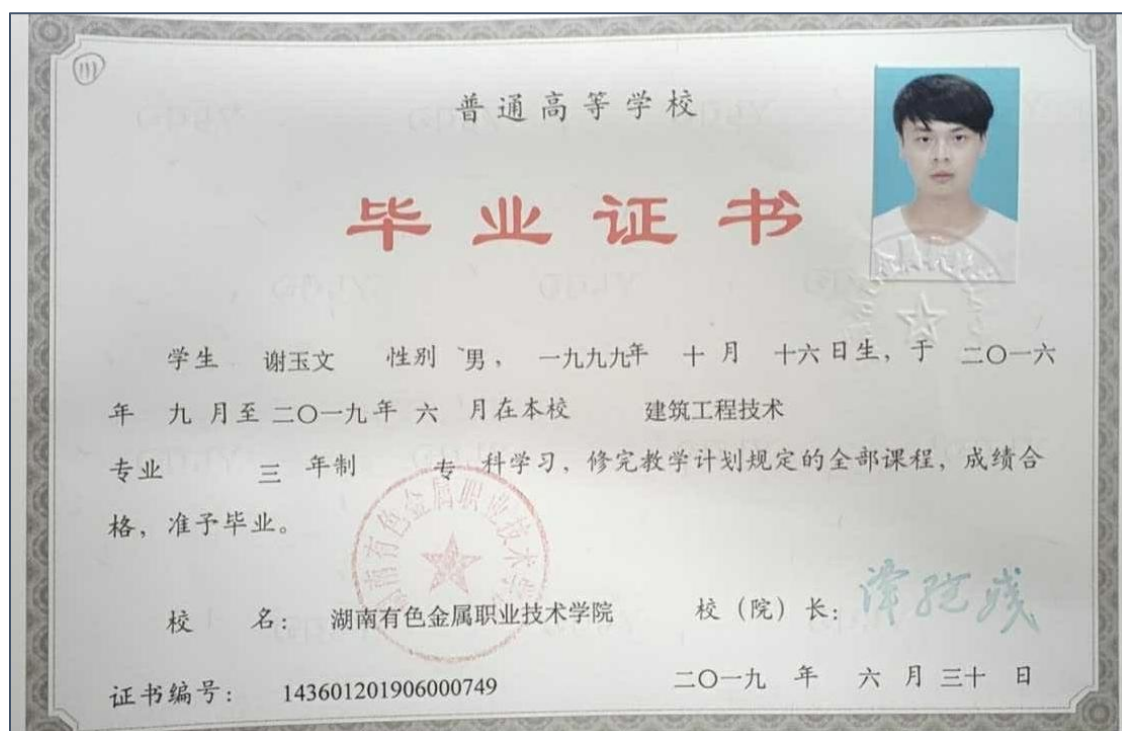 (111)
普通高等学校
毕业证书
学生 谢玉文 性别 男, 一九九九年 十 月 十六 日生, 于 二〇一六
年 九 月至 二〇一九 年 六 月在本校 建筑工程技术
专业 三 年制 专 科学习, 修完教学计划规定的全部课程, 成绩合
格, 准予毕业。
湖南有色金属职业技术学院
校 名: 湖南有色金属职业技术学院 校(院)长:
证书编号: 143601201906000749 二〇一九 年 六 月 三十 日